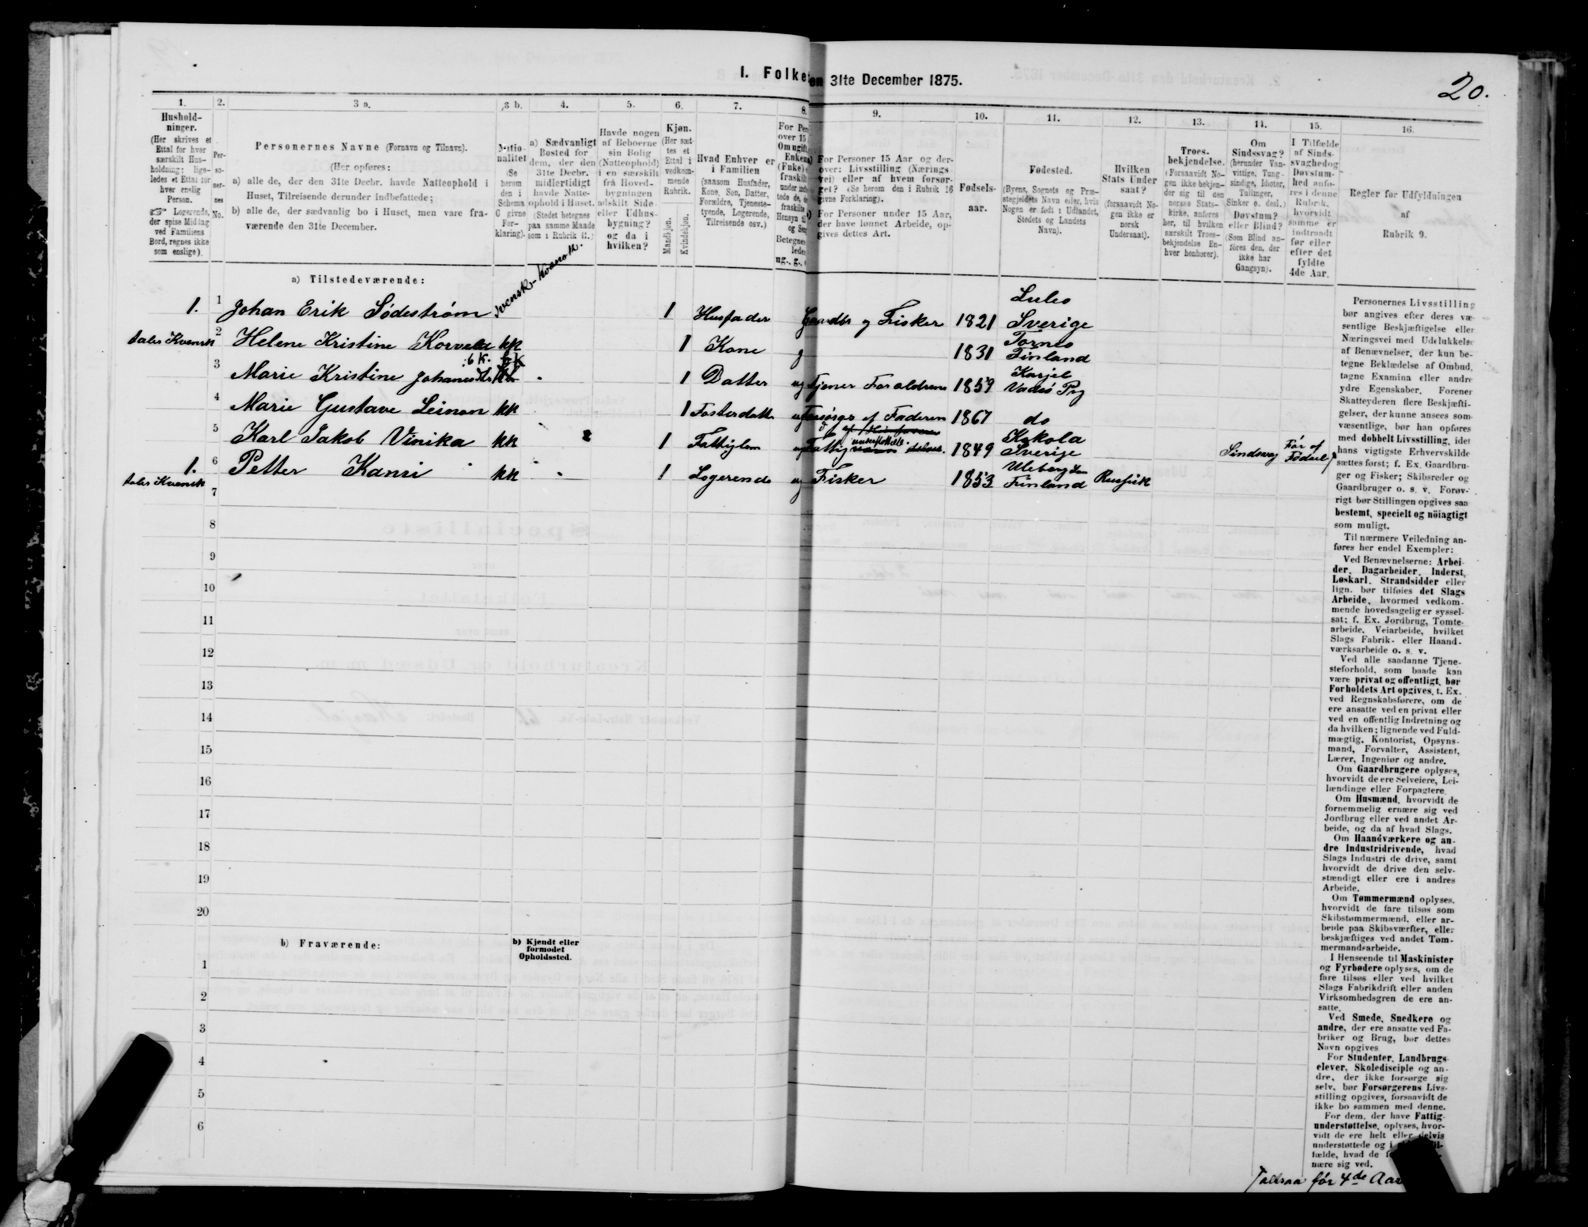 1. Folke
31te December 1875.
20.
1.
2.
3 a.
3 b.
4.
5.
6.
7.
8.
9.
10.
11.
12.
13.
14.
15.
16.
Hushold-
ninger.
(Her skrives et
Ettal for hver
særskilt Hus-
holdning; lige-
ledes et Ettal for
hver enslig
Person.
Logerende,
der spise Middag
ved Familiens
Bord, regnes ikke
som enslige).
Per-
so-
ner-
nes
No.
Personernes Navne (Fornavn og Tilnavn).
(Her opføres:
a) alle de, der den 31te Decbr. havde Natteophold i
Huset, Tilreisende derunder indbefattede;
b) alle de, der sædvanlig bo i Huset, men vare fra-
værende den 31te December.
Natio-
nalitet
(Se
herom
den i
Schema
O givne
For-
klaring).
a) Sædvanligt
Bosted for
dem, der den
31te Decbr.
midlertidigt
havde Natte-
ophold i Huset.
(Stedet betegnes
paa samme Maade
som i Rubrik 11.)
Havde nogen
af Beboerne
sin Bolig
(Natteophold)
i en særskilt
fra Hoved-
bygningen
adskilt Side-
eller Udhus-
bygning?
og da i
hvilken?
Kjøn.
(Her sæt-
tes et
Ettal i
vedkom-
mende
Rubrik.
Mandkjøn.
Kvindekjøn.
Hvad Enhver er
i Familien
(saasom Husfader,
Kone, Søn, Datter,
Forældre, Tjeneste-
tyende, Logerende,
Tilreisende osv.)
For Per
over 15
Om ugift,
Enkem
(Fuke) e
fraskilt
For Personer 15 Aar og der-
over: Livsstilling (Nærings-
vei) eller af hvem forsør-
get? (Se herom den i Rubrik 16
givne Forklaring).
For Personer under 15 Aar,
der have lønnet Arbeide, op-
gives dettes Art.
Fødsels-
aar.
Fødested.
(Byens, Sognets og Præ-
stegjeldets Navn eller, hvis
Nogen er født i Udlandet,
Stedets og Landets
Navn).
Hvilken
Stats Under-
saat?
(forsaavidt No-
gen ikke er
norsk
Undersaat).
Troes-
bekjendelse.
(Forsaavidt No-
gen ikke bekjen-
der sig til den
norske Stats-
kirke, anføres
her, til hvilken
særskilt Troes-
bekjendelse En-
hver henhører).
Om
Sindssvag?
(herunder Van-
vittige, Tung-
sindige, Idioter,
Tullinger,
Sinker o. desl.)
Døvstum?
eller Blind?
(Som Blind an-
føres den, der
ikke har
Gangsyn).
I Tilfælde
af Sinds-
svaghed og
Døvstum-
hed anfø-
res i denne
Rubrik,
hvorvidt
samme er
indtraadt
før eller
efter det
fyldte
4de Aar.
Regler for Udfyldningen
af
Rubrik 9.
a) Tilstedeværende:
1. 1 Johan Erik Södeström Svensk-kvensk. 1 Husfader Gaardbr og Fisker 1821 Luleo Sverige
tales Kvensk 2 Helene Kristine kk 1 Kone g 1831 Torneo Finland
3 Marie Kristine 1 Datter ug Tjener Forældrene 1859 Karjel Vadsö Prg
4 Marie Gustave Leinon kk 1 Fosterdatt ug Forsørges af Faderen 1867 do
5 Karl Jakob Vinika kk 1 Fattiglem ug 1849 Sverige Sindsvag Før af
1. 6 Petter Kansi kk 1 Logerende ug Fisker 1853 Uleborg Finland Russisk
tales Kvensk
7
8
9
10
11
12
13
14
15
16
17
18
19
20
b) Fraværende:
b) Kjendt eller
formodet
Opholdssted.
1
2
3
4
5
6
Personernes Livsstilling
bør angives efter deres væ-
sentlige Beskjæftigelse eller
Næringsvei med Udelukkelse
af Benævnelser, der kun be-
tegne Beklædelse af Ombud,
tagne Examina eller andre
ydre Egenskaber. Forener
Skatteyderen flere Beskjæfti-
gelser, der kunne ansees som
væsentlige, bør han opføres
med dobbelt Livsstilling, idet
hans vigtigste Erhvervskilde
sættes først; f. Ex. Gaardbru-
ger og Fisker; Skibsreder og
Gaardbruger o. s. v. Forøv-
rigt bør Stillingen opgives saa
bestemt, specielt og nöiagtigt
som muligt.
Til nærmere Veiledning an-
føres her endel Exempler:
Ved Benævnelserne: Arbei-
der, Dagarbeider, Inderst,
Løskarl, Strandsidder eller
lign. bør tilføies det Slags
Arbeide, hvormed vedkom-
mende hovedsagelig er syssel-
sat; f. Ex. Jordbrug, Tomte-
arbeide, Veiarbeide, hvilket
Slags Fabrik- eller Haand-
værksarbeide o. s. v.
Ved alle saadanne Tjene-
steforhold, som baade kan
være privat og offentligt, bør
Forholdets Art opgives, t. Ex.
ved Regnskabsførere, om de
ere ansatte ved en privat eller
ved en offentlig Indretning og
da hvilken; lignende ved Fuld-
mægtig, Kontorist, Opsyns-
mand, Forvalter, Assistent,
Lærer, Ingeniør og andre.
Om Gaardbrugere oplyses,
hvorvidt de ere Selveiere, Lei-
lændinge eller Forpagtere.
Om Husmænd, hvorvidt de
fornemmelig ernære sig ved
Jordbrug eller ved andet Ar-
beide, og da af hvad Slags.
Om Haandværkere og an-
dre Industridrivende, hvad
Slags Industri de drive, samt
hvorvidt de drive den selv-
stændigt eller ere i andres
Arbeide.
Om Tømmermænd oplyses,
hvorvidt de fare tilsøs som
Skibstømmermænd, eller ar-
beide paa Skibsværfter, eller
beskjæftiges ved andet Tøm-
mermandsarbeide.
I Henseende til Maskinister
og Fyrbødere oplyses, om de
fare tilsøs eller ved hvilket
Slags Fabrikdrift eller anden
Virksomhedsgren de ere an-
satte.
Ved Smede, Snedkere og
andre, der ere ansatte ved Fa-
briker og Brug, bør dettes
Navn opgives
For Studenter, Landbrugs-
elever, Skoledisciple og an-
dre, der ikke forsørge sig
selv, bør Forsørgerens Livs-
stilling opgives, forsaavidt de
ikke bo sammen med denne.
For dem, der have Fattig-
understøttelse, oplyses, hvor-
vidt de ere helt eller delvis
understøttede og i
fælde, hvad de
nære sig ved.
før 4de Aar